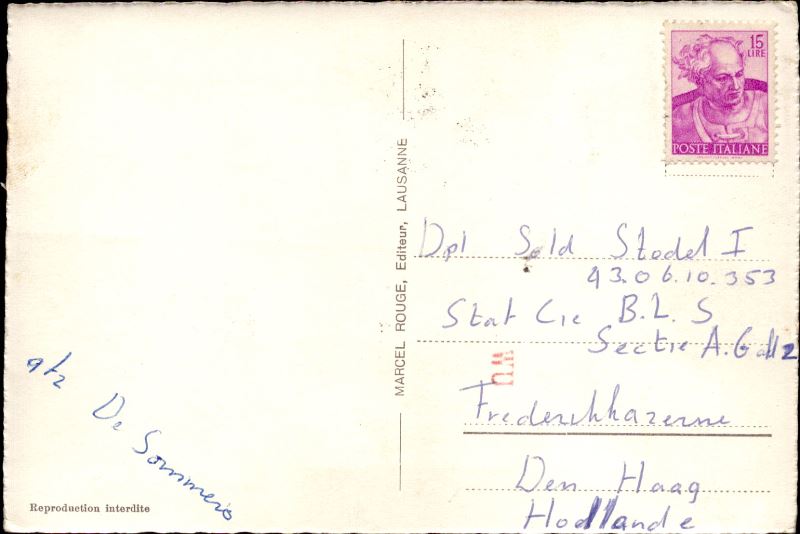 15
LIRE
POSTE ITALIANE
MARCEL ROUGE, Editeur, LAUSANNE
Dpl Sold Stodel I
43.06.10.353
Stat Cie B.L.S
Sectie A.G
Frederikkazerne
Den Haag
Hollande
De Sommeis
Reproduction interdite